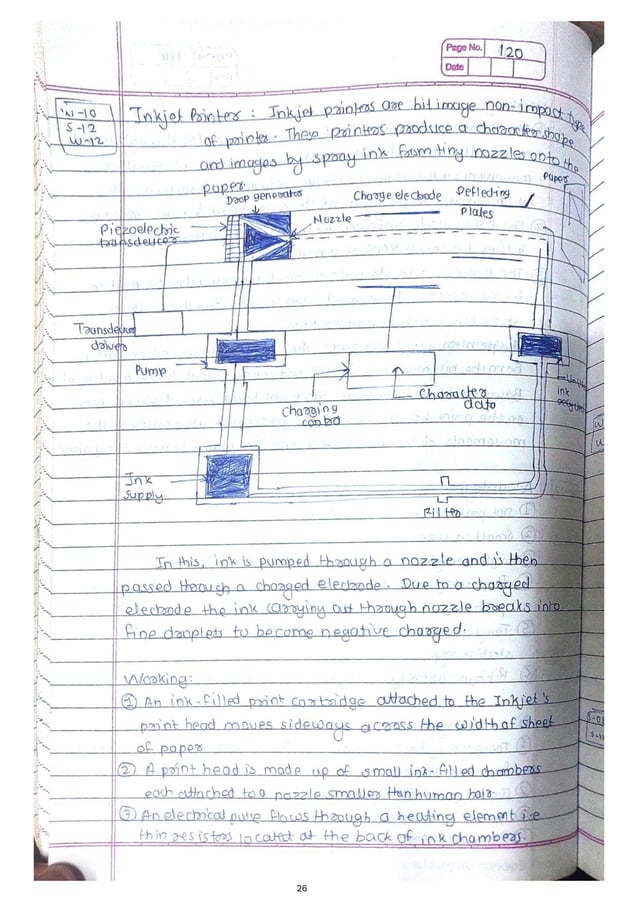 Page No. 120
Date
W-10
S-12
W-12
Inkjet Printer : Inkjet printers are bit image non-impact type
of printer. These printers produce a character shape
and images by spray ink from tiny nozzles onto the
paper.
Paper
Drop generator
Charge electrode
Deflecting
Plates
Nozzle
Piezoelectric
transducer
Transducer
driver
Pump
Charging
control
Character
data
ink
Ink
supply
Filter
In this, ink is pumped through a nozzle and is then
passed through a charged electrode. Due to a charged
electrode the ink carrying out through nozzle breaks into
fine droplets to become negative charged.
Working:
① An ink-filled print cartridge attached to the Inkjet's
print head moves sideways across the width of sheet
of paper
② A print head is made up of small ink-filled chambers
each attached to a nozzle smaller than human hair.
③ An electrical pulse flows through a heating element i.e
thin resistors located at the back of ink chambers.
26